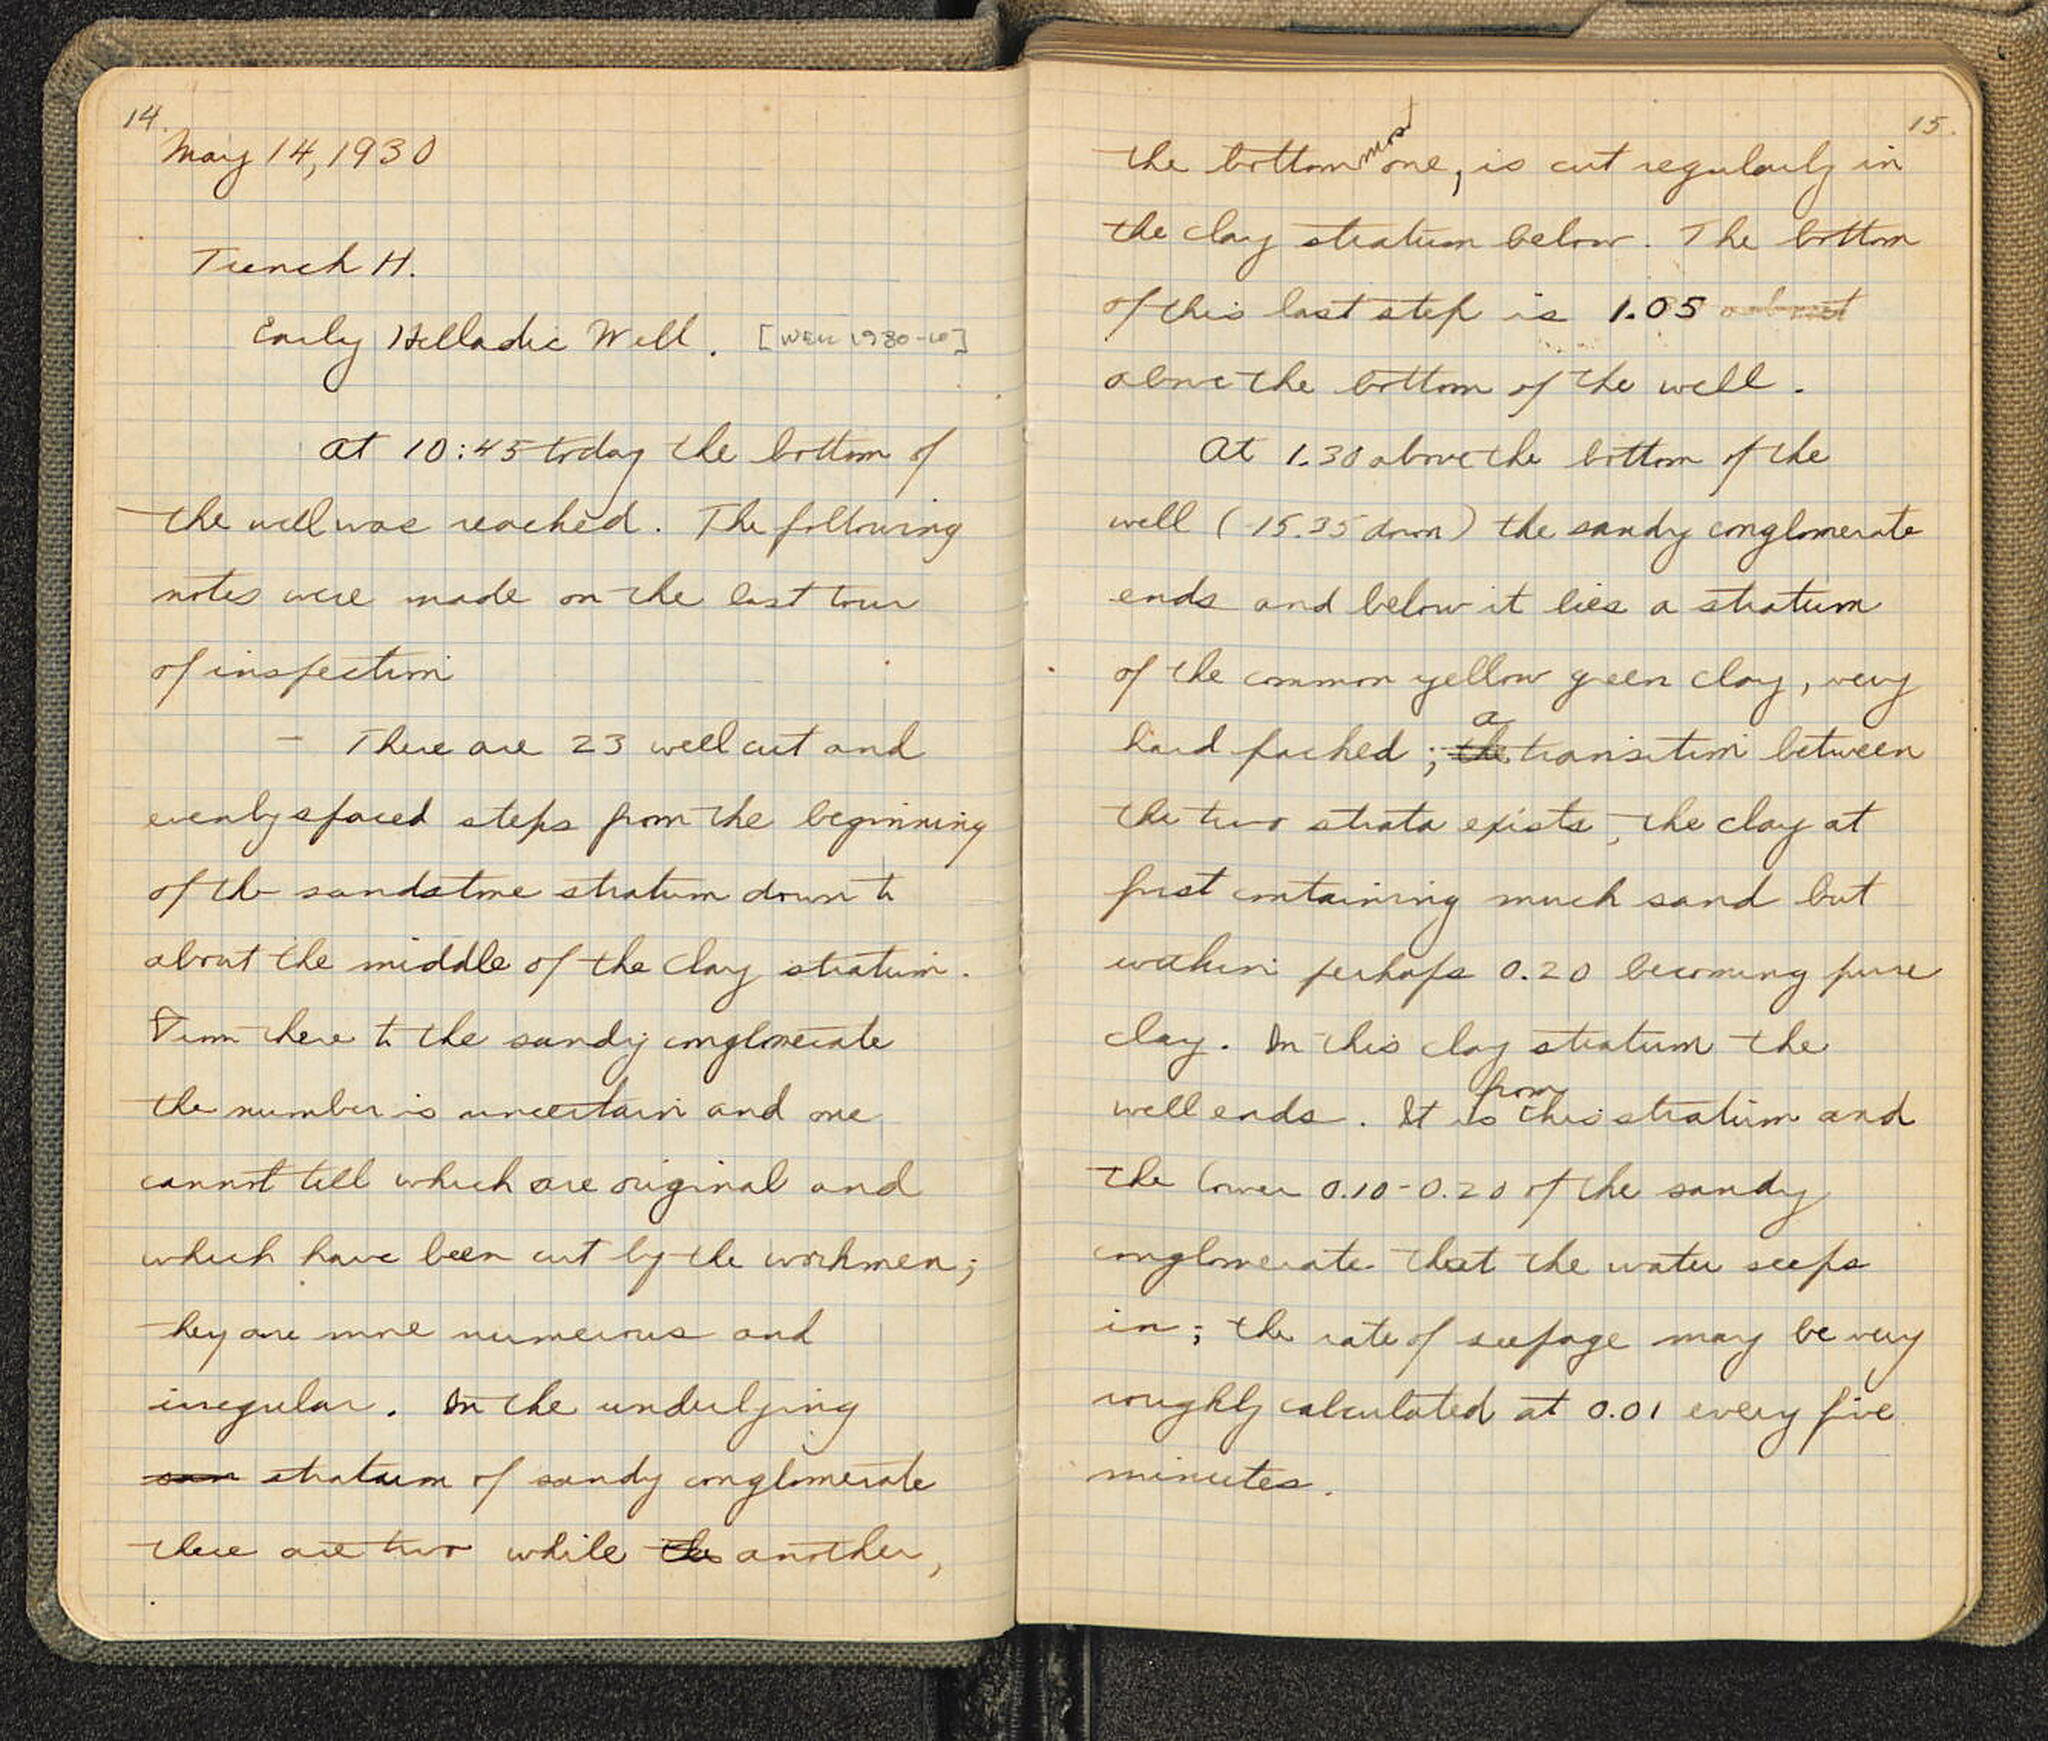 14.
May 14, 1930
Trench H.
Early Helladic Well. [WELL 1930-10]
At 10:45 today the bottom of
the well was reached. The following
notes were made on the last tour
of inspection
- There are 23 well cut and
evenly spaced steps from the beginning
of the sandstone stratum down to
about the middle of the clay stratum.
From there to the sandy conglomerate
the number is uncertain and one
cannot tell which are original and
which have been cut by the workmen;
they are more numerous and
irregular. In the underlying
san stratum of sandy conglomerate
there are two while the another,
15.
the bottommost one, is cut regularly in
the clay stratum below. The bottom
of this last step is 1.05 about
above the bottom of the well.
At 1.30 above the bottom of the
well (-15.35 down) the sandy conglomerate
ends and below it lies a stratum
of the common yellow green clay, very
hard packed; the a transition between
the two strata exists, the clay at
first containing much sand but
within perhaps 0.20 becoming pure
clay. In this clay stratum the
well ends. It is from this stratum and
the lower 0.10-0.20 of the sandy
conglomerate that the water seeps
in; the rate of seepage may be very
roughly calculated at 0.01 every five
minutes.